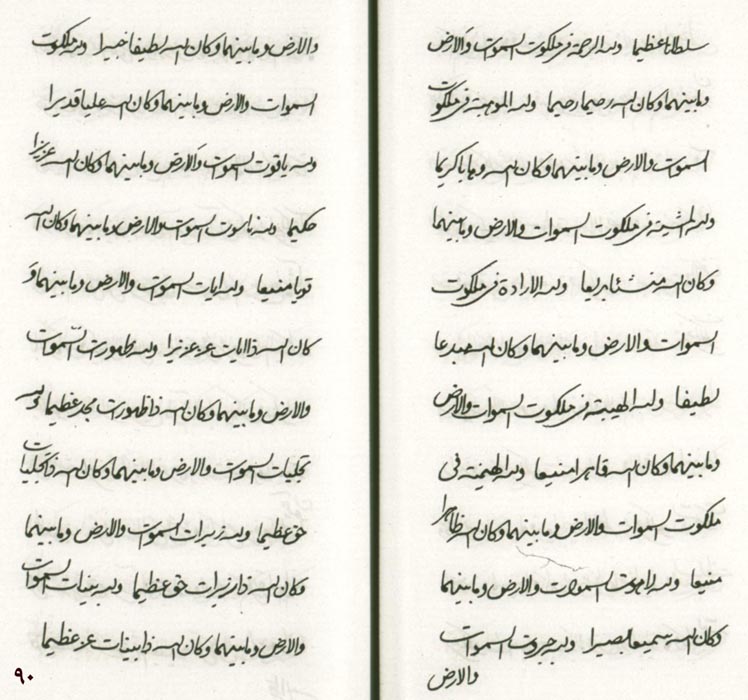 سلطانا عظیما ولله الرحمة فی ملکوت السموات والارض
وما بینهما وکان الله رحیما رحیما ولله الموهبة فی ملکوت
السموات والارض وما بینهما وکان الله وهابا کریما
ولله المشیة فی ملکوت السموات والارض وما بینهما
وکان الله منشئا بریعا ولله الارادة فی ملکوت
السموات والارض وما بینهما وکان الله مبدعا
لطیفا ولله الهیبة فی ملکوت السموات والارض
وما بینهما وکان الله قاهرا منیعا ولله الهیمنة فی
ملکوت السموات والارض وما بینهما وکان الله ظاهرا
منیعا ولله لاهوت السموات والارض وما بینهما
وکان الله سمیعا بصیرا ولله جبروت السموات
والارض
والارض وما بینهما وکان الله لطیفا خبیرا ولله ملکوت
السموات والارض وما بینهما وکان الله علیا قدیرا
ولله یاقوت السموات والارض وما بینهما وکان الله عزیزا
حکیما ولله ناسوت السموات والارض وما بینهما وکان الله
قویا منیعا ولله ایات السموات والارض وما بینهما و
کان الله ذا ایات عز عزیزا ولله ظهورت السموات
والارض وما بینهما وکان الله ذا ظهورت مجد عظیما ولله
تجلیات السموات والارض وما بینهما وکان الله ذا تجلیات
حق عظیما ولله زبرات السموات والارض وما بینهما
وکان الله ذا زبرات حق عظیما ولله بینات السموات
والارض وما بینهما وکان الله ذا بینات عز عظیما
۹۰